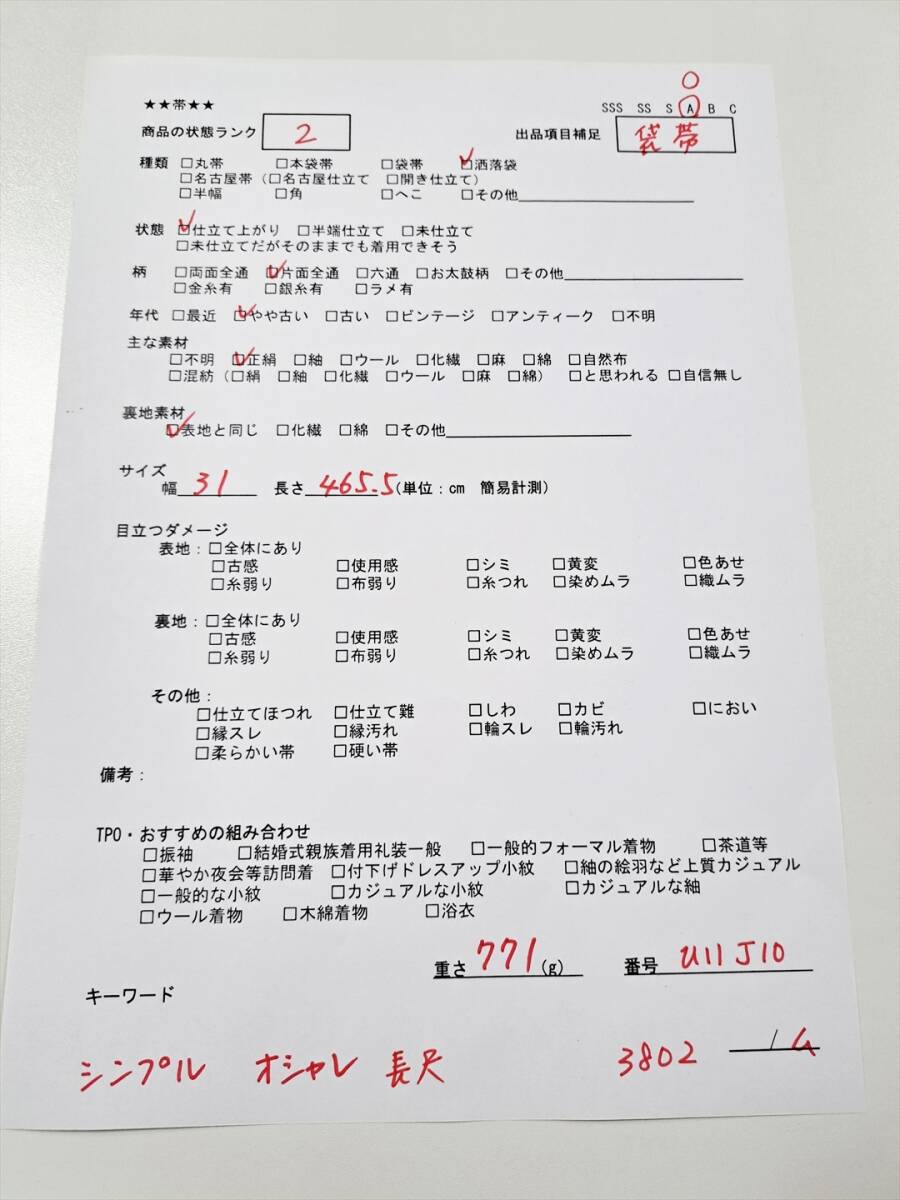 ★★帯★★
SSS SS S A B C
商品の状態ランク 2 出品項目補足 袋帯
種類 □丸帯 □本袋帯 □袋帯 ☑洒落袋
□名古屋帯(□名古屋仕立て □開き仕立て)
□半幅 □角 □へこ □その他
状態 ☑仕立て上がり □半端仕立て □未仕立て
□未仕立てだがそのままでも着用できそう
柄 □両面全通 ☑片面全通 □六通 □お太鼓柄 □その他
□金糸有 □銀糸有 □ラメ有
年代 □最近 ☑やや古い □古い □ビンテージ □アンティーク □不明
主な素材
□不明 ☑正絹 □紬 □ウール □化繊 □麻 □綿 □自然布
□混紡(□絹 □紬 □化繊 □ウール □麻 □綿) □と思われる □自信無し
裏地素材
☑表地と同じ □化繊 □綿 □その他
サイズ
幅 31 長さ 465.5 (単位:cm 簡易計測)
目立つダメージ
表地:□全体にあり
□古感 □使用感 □シミ □黄変 □色あせ
□糸弱り □布弱り □糸つれ □染めムラ □織ムラ
裏地:□全体にあり
□古感 □使用感 □シミ □黄変 □色あせ
□糸弱り □布弱り □糸つれ □染めムラ □織ムラ
その他:
□仕立てほつれ □仕立て難 □しわ □カビ □におい
□縁スレ □縁汚れ □輪スレ □輪汚れ
□柔らかい帯 □硬い帯
備考:
TPO・おすすめの組み合わせ
□振袖 □結婚式親族着用礼装一般 □一般的フォーマル着物 □茶道等
□華やか夜会等訪問着 □付下げドレスアップ小紋 □紬の絵羽など上質カジュアル
□一般的な小紋 □カジュアルな小紋 □カジュアルな紬
□ウール着物 □木綿着物 □浴衣
重さ 771 (g) 番号 U11J10
キーワード
シンプル オシャレ 長尺 3802